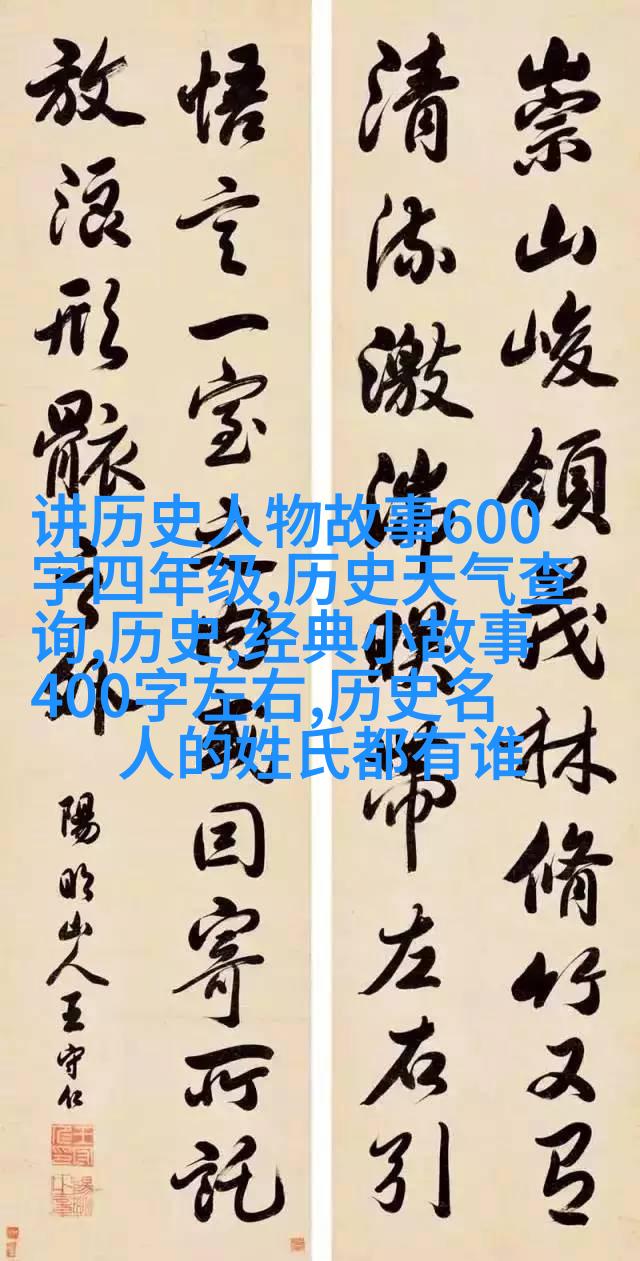 崇山峻領茂林脩竹又有
清流激湍暎帶左右引
悟言一室之内或因寄所託
放浪形骸之外
陽明山人王守仁
讲历史人物故事600
字四年级,历史天气查
询,历史,经典小故事
400字左右,历史名
人的姓氏都有谁